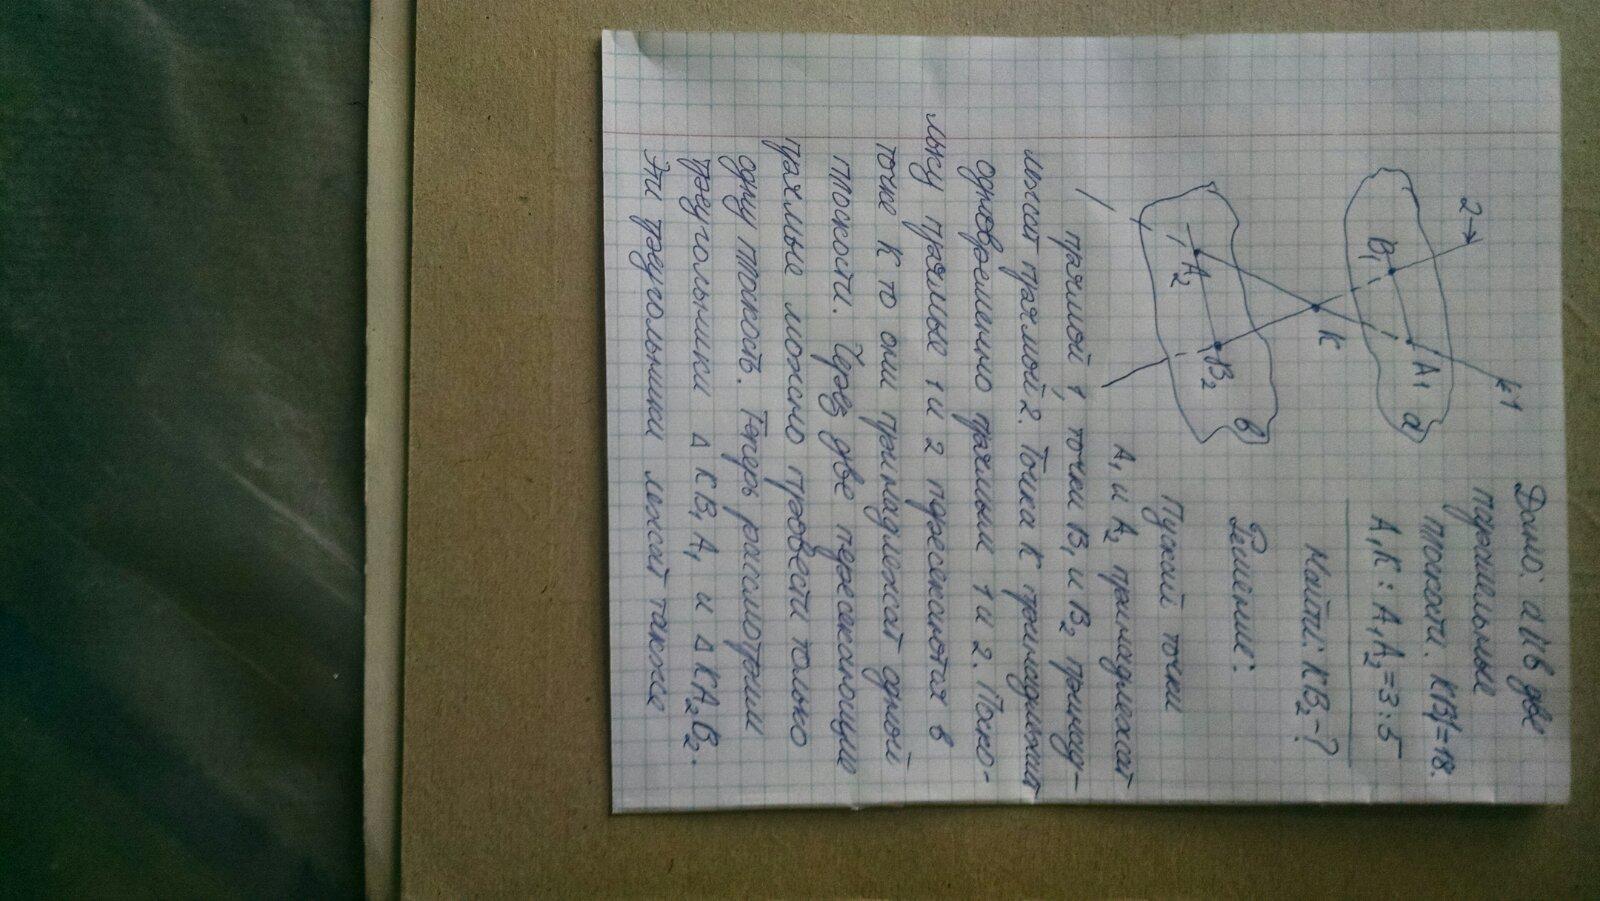 Дано: α ∥ в две
паралельные
плоскоти. KB₁=18.
A₁K : A₁A₂=3:5
Найти: KB₂-?
Решение:
2
1
B₁
A₁
α
K
A₂
B₂
в
Пускай точки
A₁ и A₂ принадлежат
прямой 1, точки B₁ и B₂ принад-
лежат прямой 2. Точка K принадлежит
одновременно прямым 1 и 2. Поско-
льку прямые 1 и 2 пересекаются в
точке K то они принадлежат одной
плоскости. Через две пересекающие
прямые можно провести только
одну плокость. Теперь рассмотрим
треугольники Δ KB₁A₁ и Δ KA₂B₂.
Эти треугольники лежат также